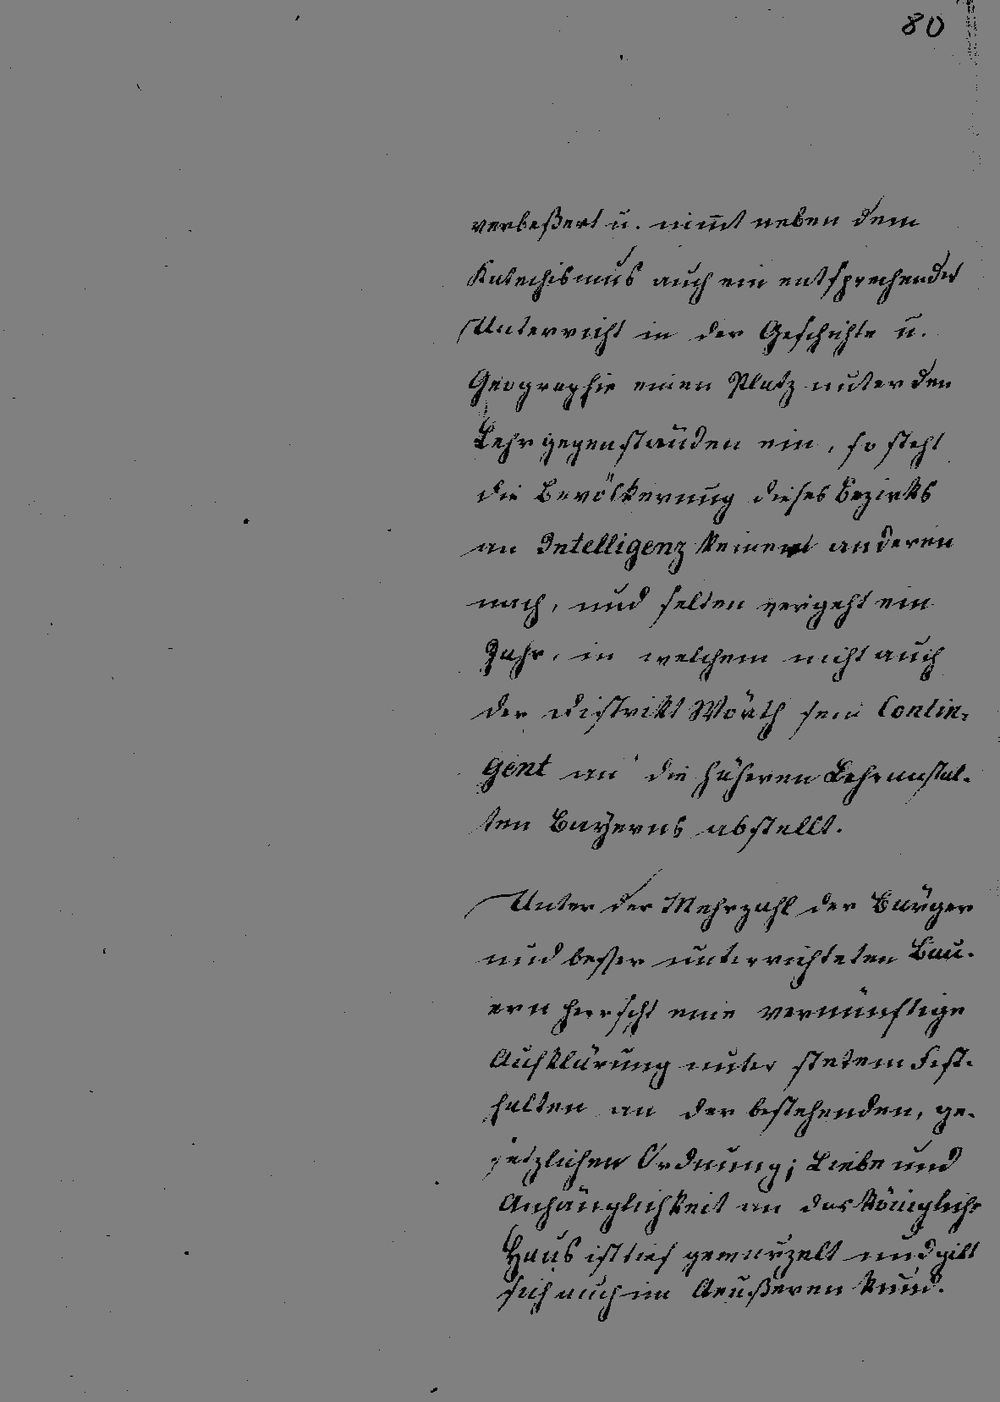 80
verbeßert u. nim̅t neben dem
Katechismus auch ein entsprechender
Unterricht in der Geschichte u.
Geographie einen Platz unter den
Lehrgegenständen ein, so steht
die Bevölkerung dieses Bezirks
an Intelligenz keinem anderen
nach, und selten vergeht ein
Jahr, in welchem nicht auch
der Distrikt Wörth sein Contin-
gent an die höheren Lehranstal-
ten Bayerns abstellt.
Unter der Mehrzahl der Bürger
und besser unterrichteten Bau-
ern herrscht eine vernünftige
Aufklärung unter stetem Fest-
halten an der bestehenden, ge-
setzlichen Ordnung; Liebe und
Anhänglichkeit an das königliche
Haus ist tief gewurzelt und gibt
sich auch im Aeußeren kund.